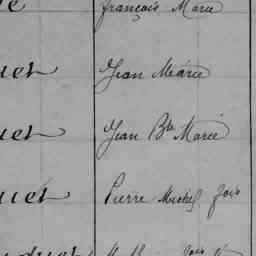 François Marie
uet Jean Marie
uet Jean Bte Marie
uet Pierre Michel fois